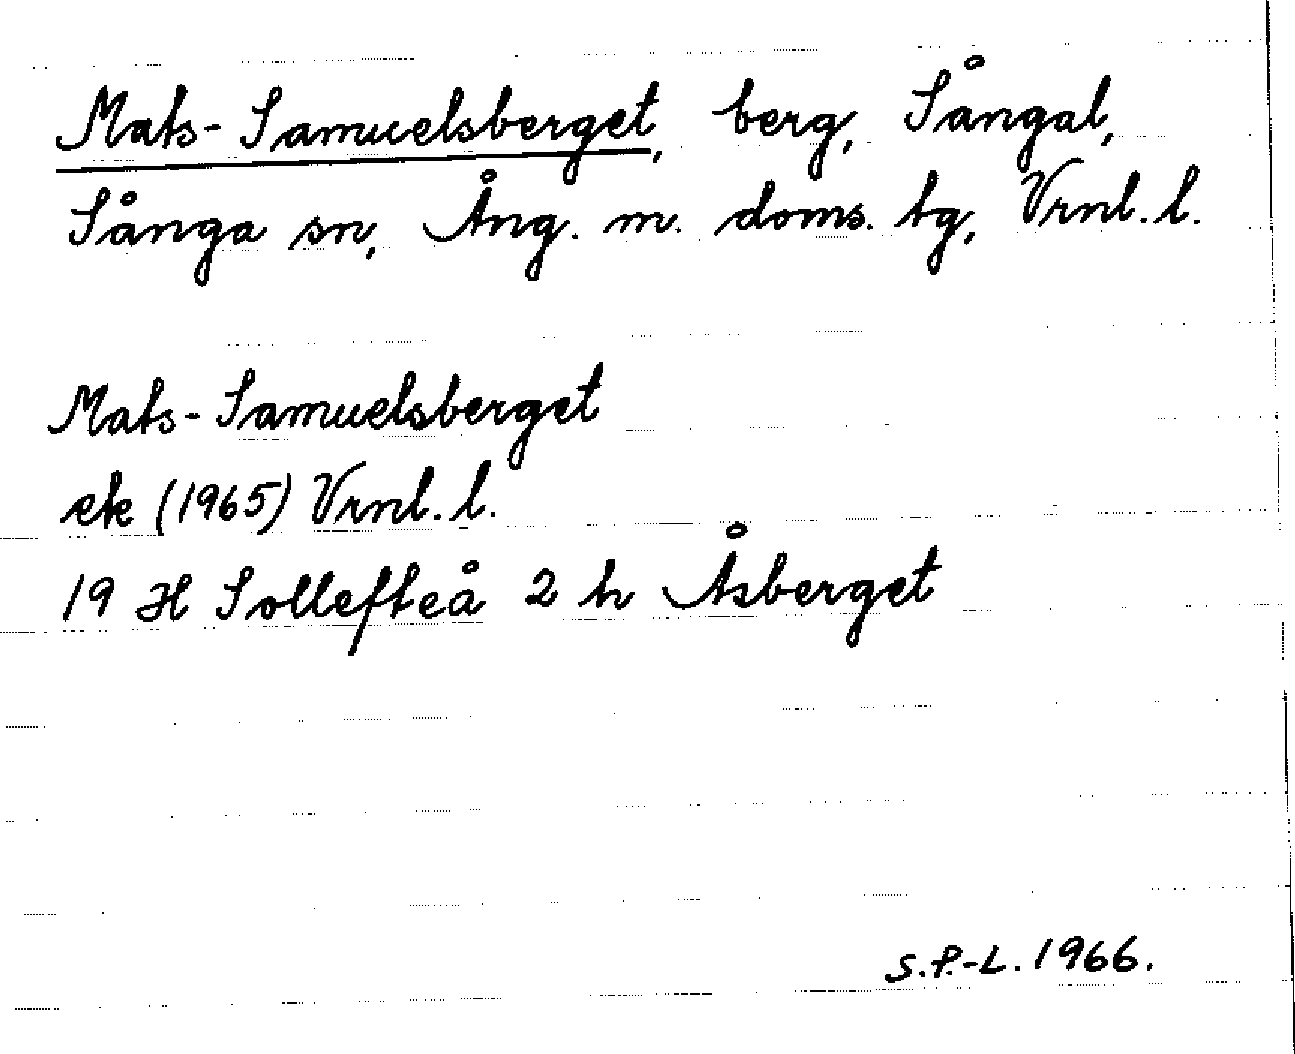 Mats-Samuelsberget, berg, Sångal,
Sånga sn, Ång. m. doms. tg, Vrnl. l.
Mats-Samuelsberget
ek (1965) Vrnl. l.
19 H Sollefteå 2 h Åsberget
S.P.-L. 1966.